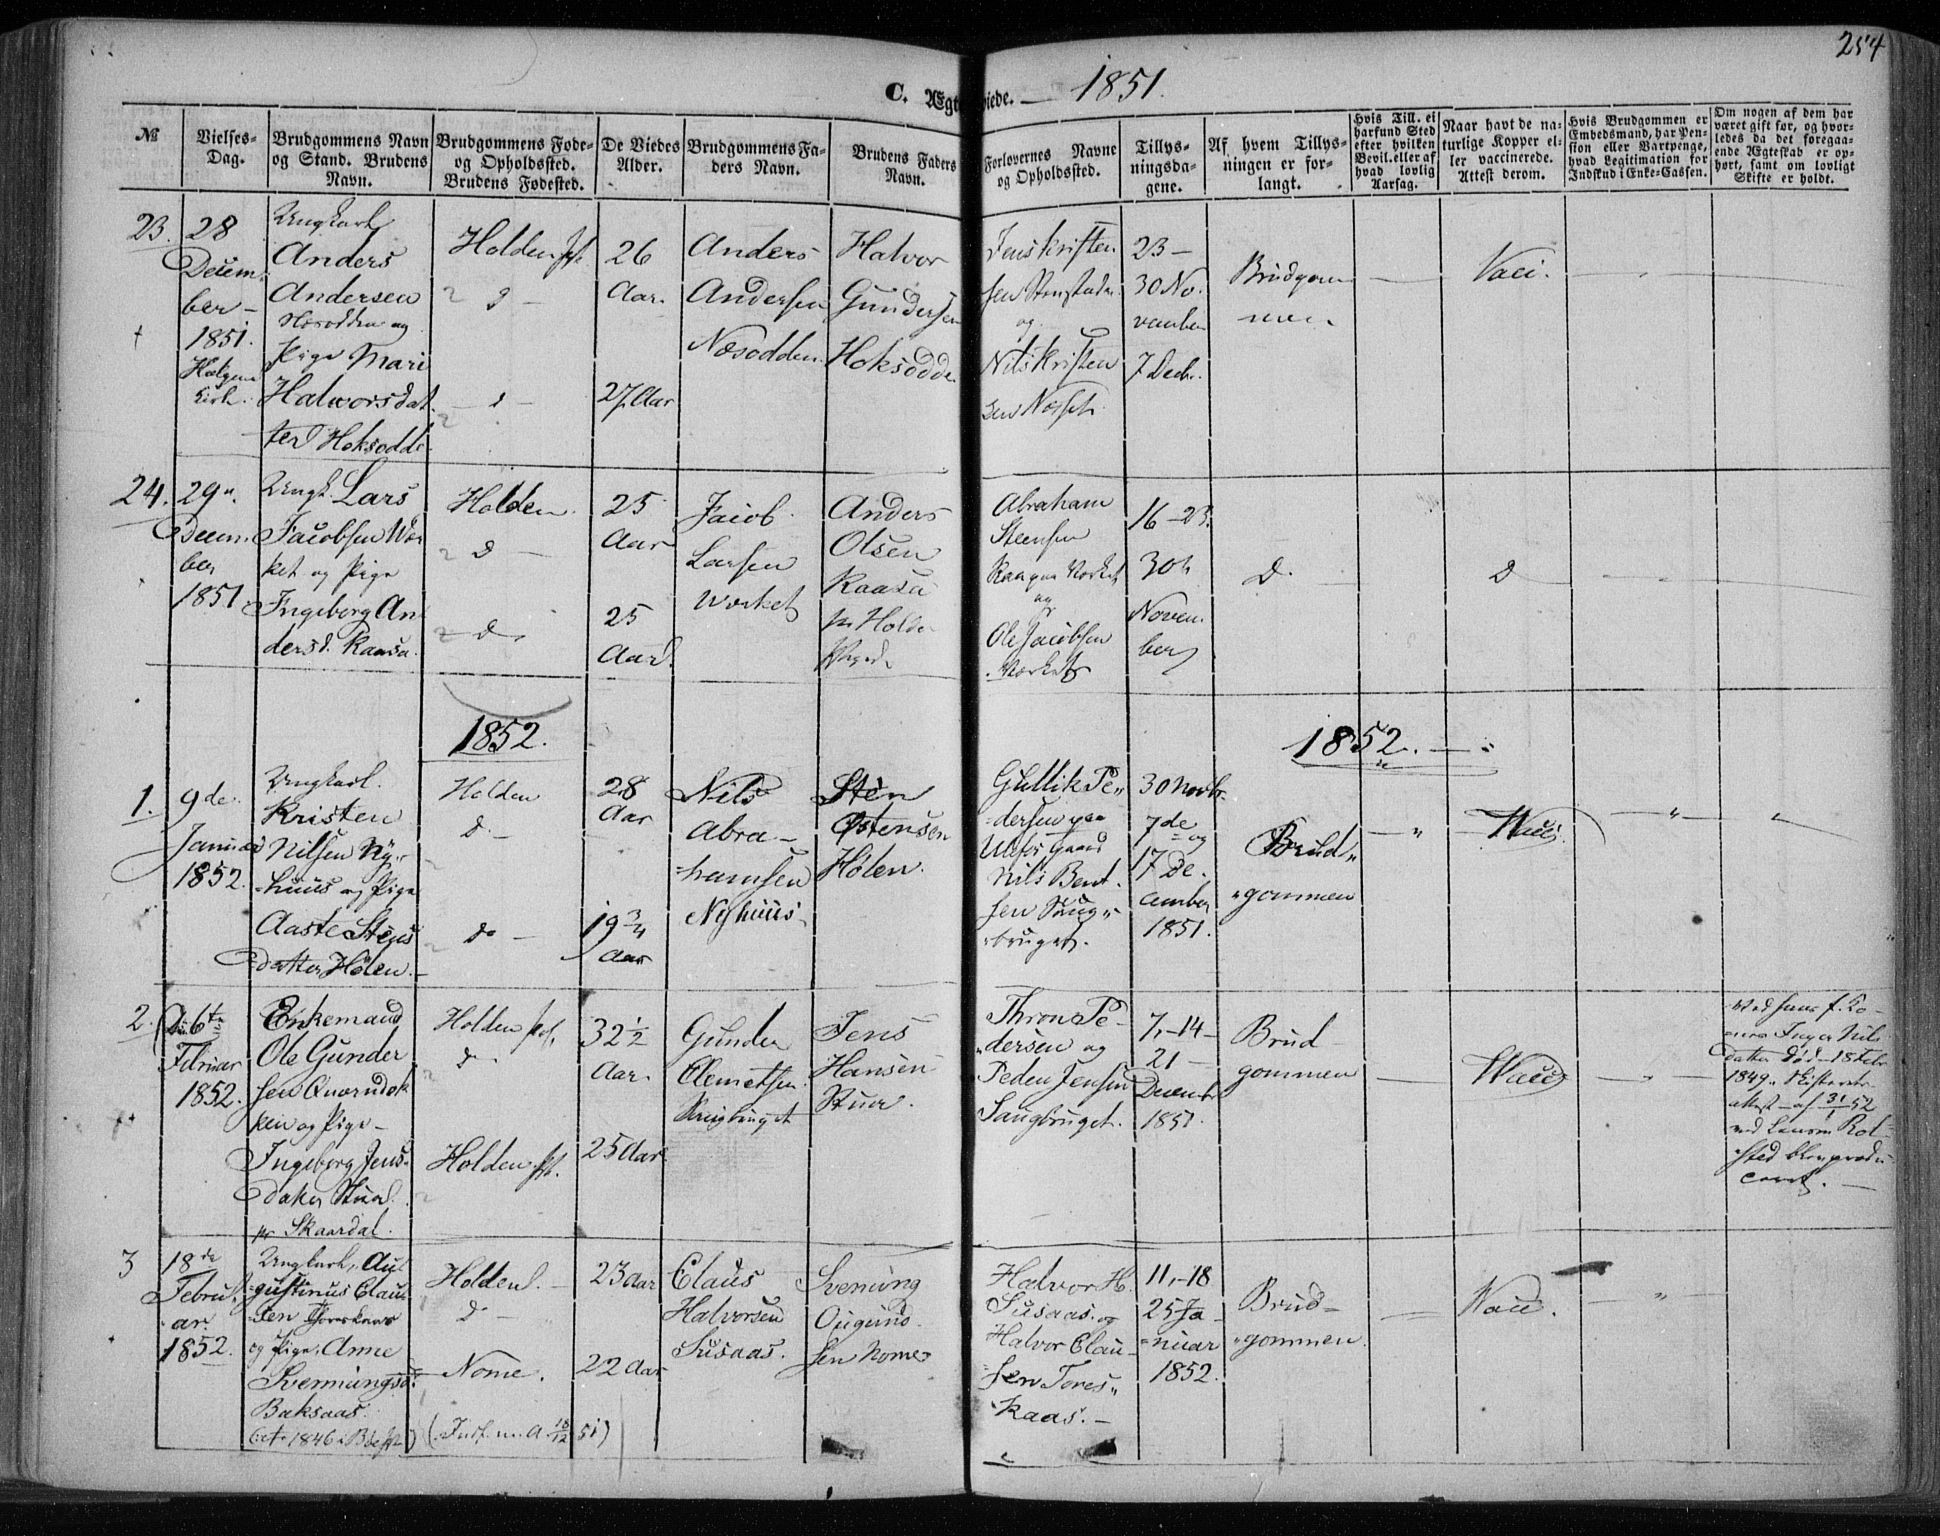 254
C. Ægteviede. — 1851.
№
Vielses-
Dag.
Brudgommens Navn
og Stand. Brudens
Navn.
Brudgommens Føde-
og Opholdssted.
Brudens Fødested.
De Viedes
Alder.
Brudgommens Fa-
ders Navn.
Brudens Faders
Navn.
Forlovernes Navne
og Opholdssted.
Tillys-
ningsda-
gene.
Af hvem Tillys-
ningen er for-
langt.
Hvis Till. ei
harfund Sted
efter hvilken
Bevil. eller af
hvad lovlig
Aarsag.
Naar havt de na-
turlige Kopper el-
ler vaccinerede.
Attest derom.
Hvis Brudgommen er
Embedsmand, har Pen-
sion eller Vartpenge,
hvad Legitimation for
Indskud i Enke-Cassen.
Om nogen af dem har
været gift før, og hvor-
ledes da det foregaa-
ende Ægteskab er op-
hørt, samt om lovligt
Skifte er holdt.
23.
28
Decem-
ber –
1851.
Kirk.
Ungkarl
Anders
Andersen
Næsodden og
Pige Mari
Halvorsdat-
ter Hoksodde
Holden
d –
d –
26
Aar.
27 Aar
Anders
Andersen
Næsodden.
Halvor
Gundersen
Hoksodde
Jens Kristen-
sen
og
Nils Kristen
sen
23 –
30 No-
vember
7 Decb.
Brudgom
men.
Vacci.
24.
29
Decem-
ber
1851
Ungk. Lars
Jacobsen Wær
ket og Pige
Ingeborg An
dersd. Raasa.
Holden.
d –
d.
25
Aar
25
Aar.
Jacob
Larsen
Wærket
Anders
Olsen
Raasa
Abraham
Steensen
og
Ole Jacobsen
Værket
16 – 23.
30te
Novem-
ber
D.
D
1852.
1852.
1.
9de
Januar
1852.
Ungkarl.
Kristen
Nilsen Ny-
huus og Pige
Aaste Stens
datter Holen.
Holden
d –
do –
28
Aar
19 3/4
Aar
Nils
Abra –
hamsen
Nyhuus
Sten
Østensen
Holen.
Gullik Pe-
dersen
Ulefos Gaard
Nils Bent-
sen Saug-
bruget.
30 Novbr.
7de og
17 De-
cember
1851.
Brud-
gommen
Vacc.
2.
D. 6te
Februar
1852.
Enkemand
Ole Gunder
sen
og Pige –
Ingeborg Jens
datter Stuen
Skaardal.
Holden
d –
Holden
32 1/2
Aar.
25 Aar.
Gunder
Clemetsen
Jens
Hansen
Stuen.
Thron Pe-
dersen og
Peder Jensen
Saugbruget.
7, – 14 –
21 –
Decembr
1851.
Brud –
gommen
Vacc.
Ved hans f. Ko-
ne Inger Nils
datter Død – 18 Febr
1849.
attest – af 31/1 52
3
18de
Februa-
ar.
1852.
Ungkarl, Au-
gustinus Claus
sen Toreskaas
og Pige, Anne
Svennungsd.
Baksaas.
Holden
d –
Nome.
23 Aar
22 Aar
Claus
Halvorsen
Susaas.
Svenung
Ougund-
sen Nome
Halvor H.
Susaas. og
Halvor Clau-
sen Tores-
kaas. –
11, – 18
25 Ja –
nuar
1852.
Brud –
gommen.
Vacc.